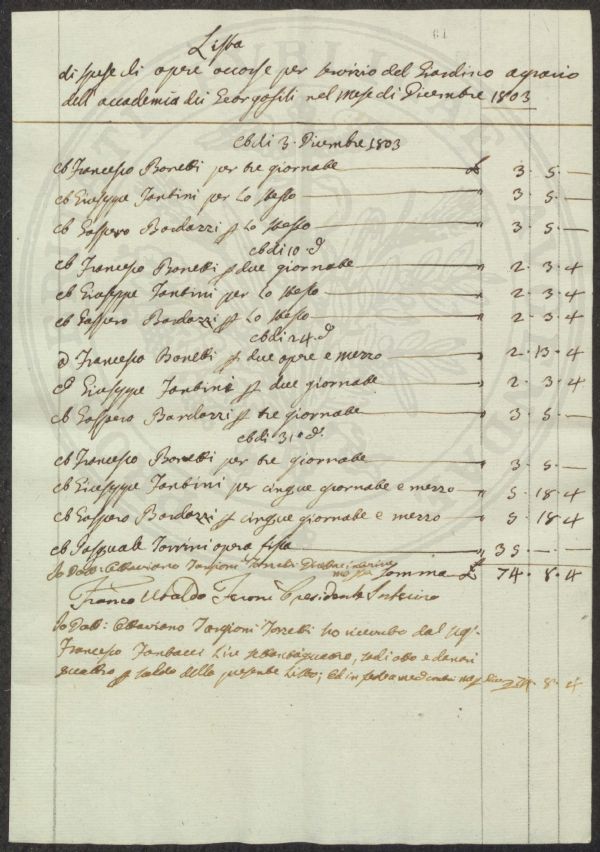 61
Lista
di spese di opere accorse per servizio del Giardino agrario
dell'accademia dei Georgofili nel mese di Dicembre 1803
di 3. Dicembre 1803
Francesco Bonetti per tre giornate £ 3. 5. —
Giuseppe Tantini per lo stesso 3. 5. —
Gaspero Bardazzi p lo stesso 3. 5. —
di 10. do
Francesco Bonetti p due giornate " 2. 3. 4
Giuseppe Tantini per lo stesso " 2. 3. 4
Gaspero Bardazzi p lo stesso " 2. 3. 4
di 24. do
Francesco Bonetti p due opere e mezzo " 2. 13. 4
Giuseppe Tantini p due giornate " 2. 3. 4
Gaspero Bardazzi p tre giornate 3. 5. —
di 31. do
Francesco Bonetti per tre giornate " 3. 5. —
Giuseppe Tantini per cinque giornate e mezzo " 5. 18. 4
Gaspero Bardazzi p cinque giornate e mezzo " 5. 18. 4
Pasquale Torrini opera fissa " 35. — . —
Io Dott: Ottaviano Targioni Tozzetti Somma £ 74. 8. 4
Franco Ubaldo Feroni Presidente Interino
Io Dott: Ottaviano Targioni Tozzetti ho ricevuto dal Sigr.
Francesco Lire settantaquattro, soldi otto e danari
quattro p saldo della presente Lista; Ed in fede 74. 8. 4